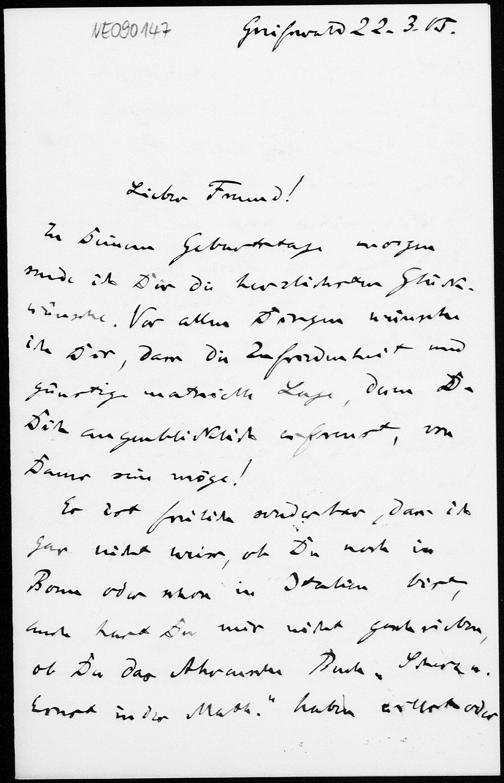 NE090147
Greifswald 22.3.05.
Lieber Freund!
Zu Deinem Geburtstage morgen
sende ich Dir die herzlichsten Glück-
wünsche. Vor allen Dingen wünsche
ich Dir, dass die Zufriedenheit und
günstige materielle Lage, deren Du
Dich augenblicklich erfreust, von
Dauer sein möge!
Es ist freilich sonderbar, dass ich
gar nicht weiss, ob Du noch in
Bonn oder schon in Italien bist,
auch hast Du mir nicht geschrieben,
ob Du das Ahrenssche Buch „Scherz u.
Ernst in der Math." haben willst oder